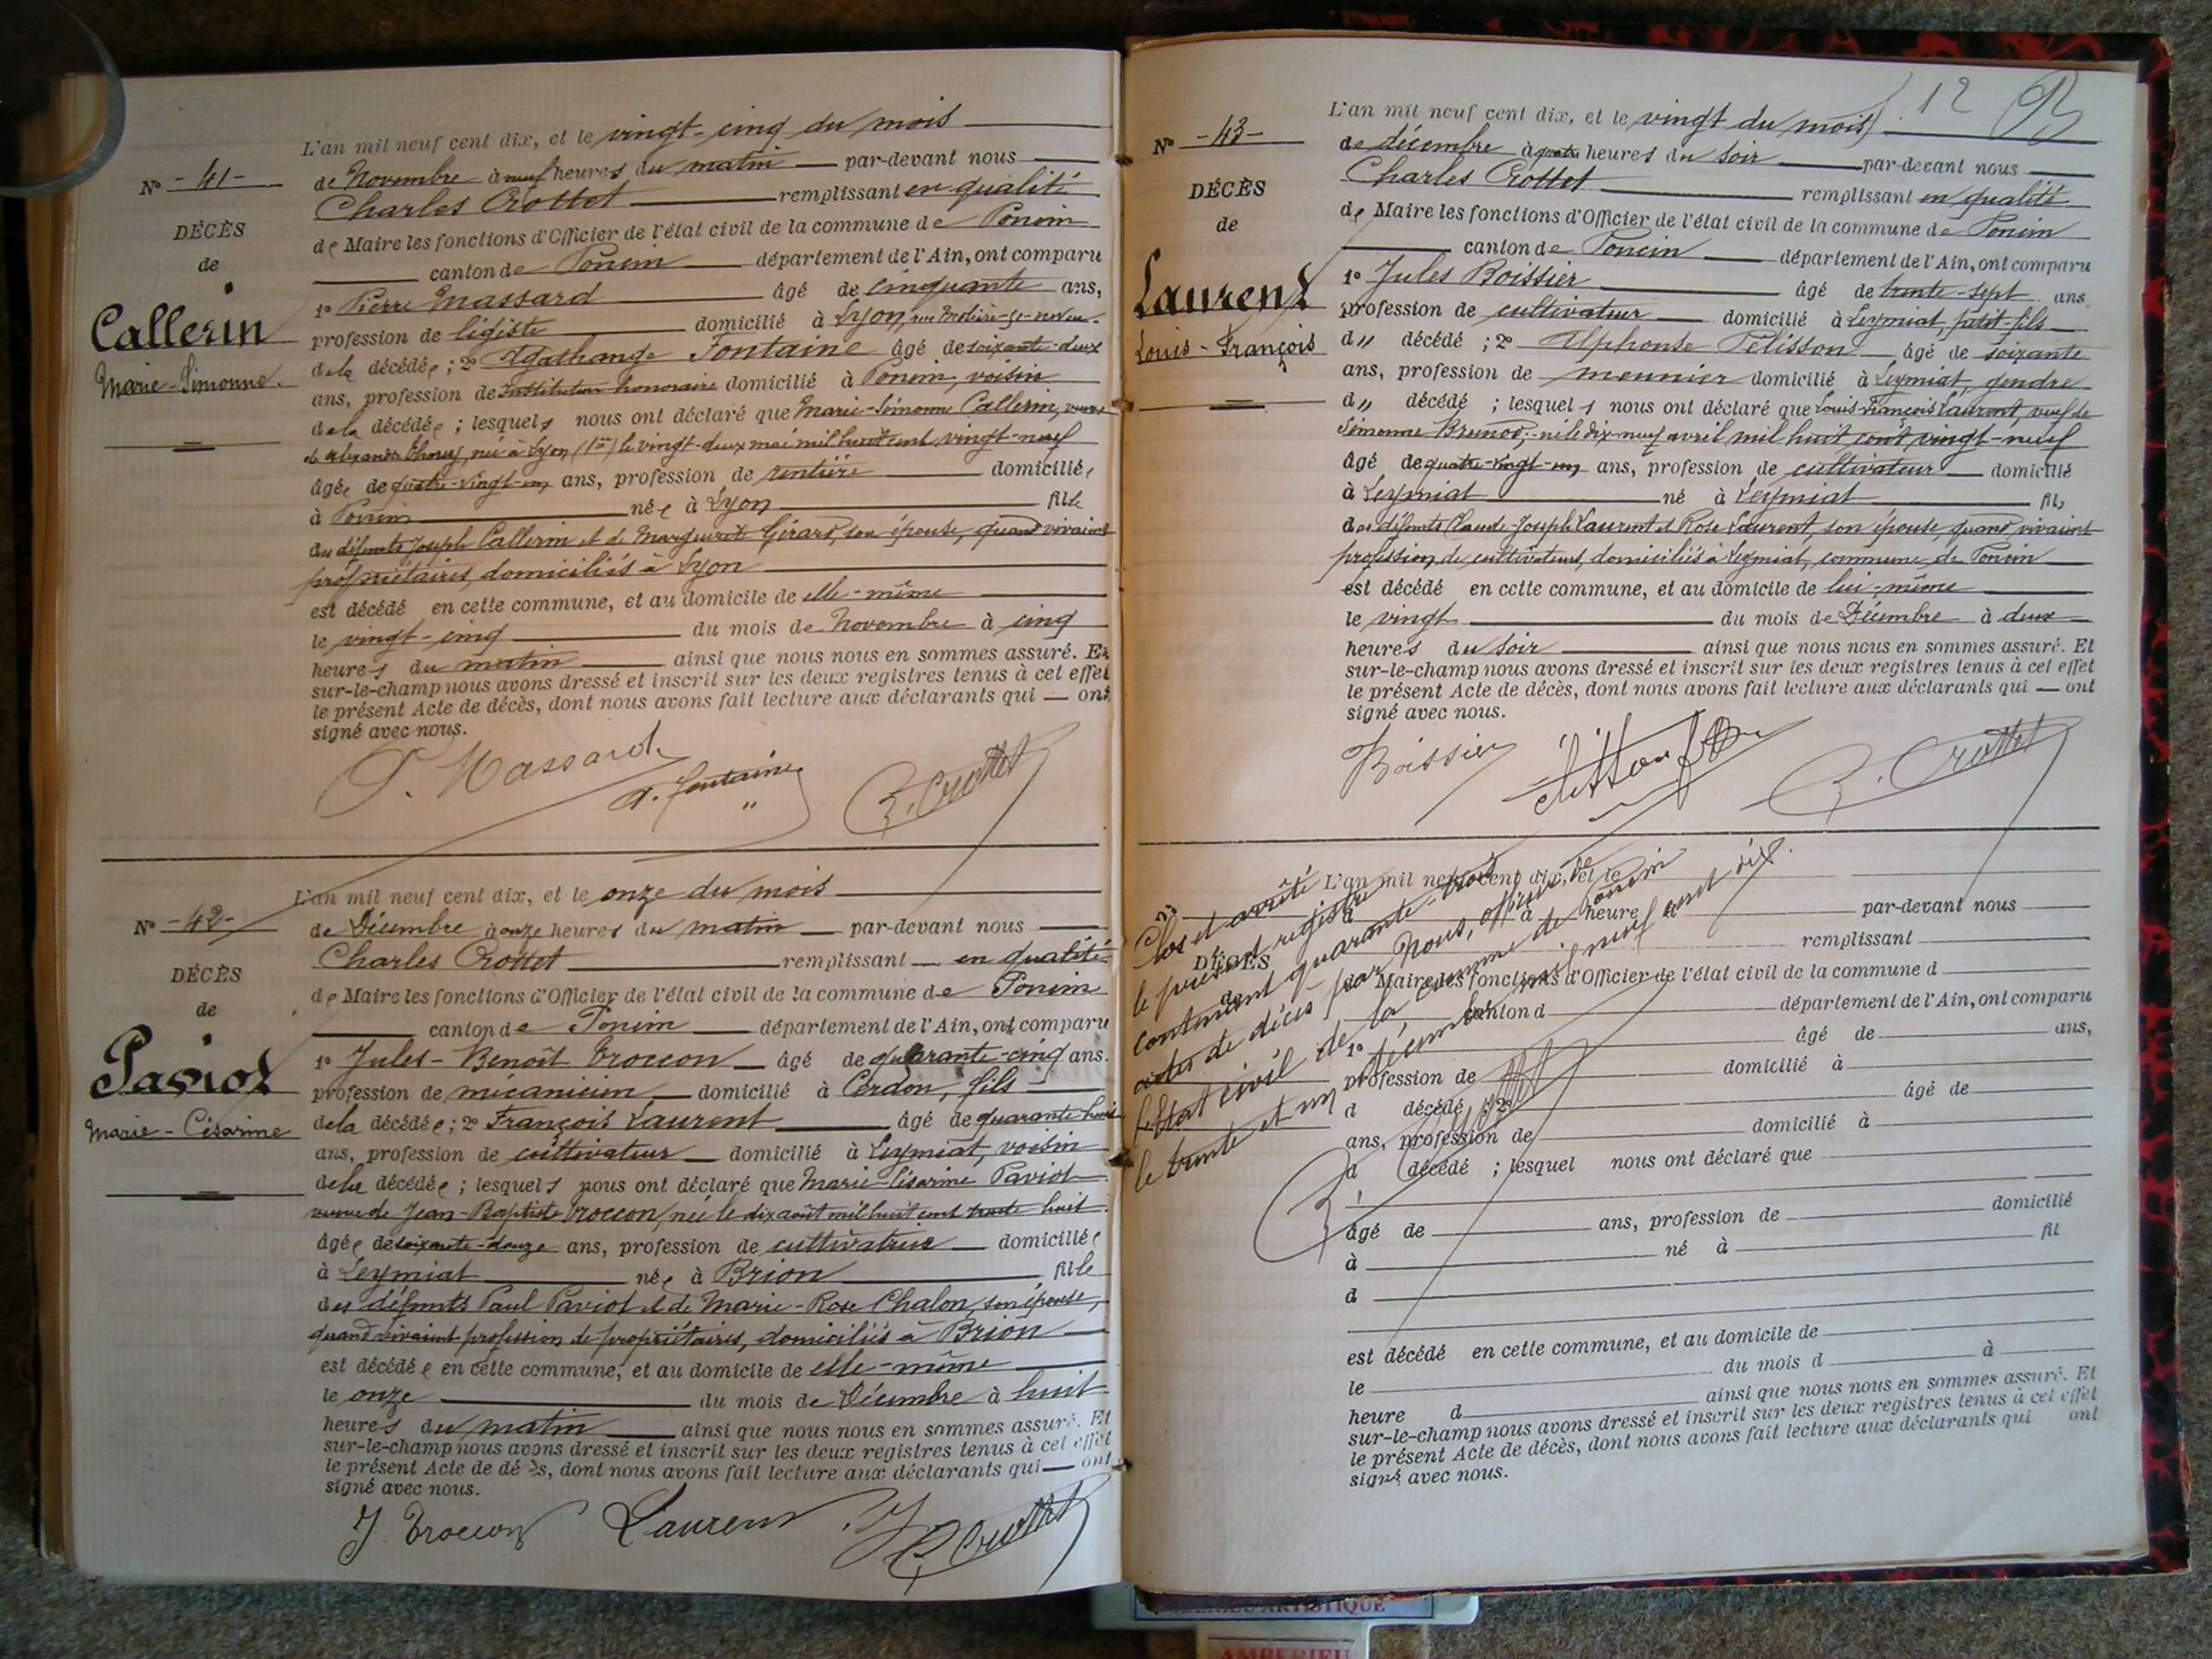 L'an mil neuf cent dix, et le vingt-cinq du mois
N° -41- de Novembre à neuf heures du matin par-devant nous
Charles Crottet remplissant en qualité
DÉCÈS
de Maire les fonctions d'Officier de l'état civil de la commune de Poncin
de
canton de Poncin département de l'Ain, ont comparu
1° Pierre Massard âgé de cinquante ans,
Callerin
profession de légiste domicilié à Lyon, rue Molière
Marie-Simonne.
de la décédée; 2° Agathange Fontaine âgé de soixante-deux
ans, profession de instituteur honoraire domicilié à Poncin, voisin
de la décédée; lesquels nous ont déclaré que Marie-Simonne Callerin, veuve
née à Lyon le vingt-deux mai mil huit cent vingt-neuf
âgée de quatre-vingt-un ans, profession de rentière domiciliée
à Poncin née à Lyon fille
des défunts Joseph Callerin et de Marguerite Gérard, son épouse, quand vivaient
propriétaires, domiciliés à Lyon
est décédé en cette commune, et au domicile de elle-même
le vingt-cinq du mois de Novembre à cinq
heures du matin ainsi que nous nous en sommes assuré. Et
sur-le-champ nous avons dressé et inscrit sur les deux registres tenus à cet effet
le présent Acte de décès, dont nous avons fait lecture aux déclarants qui — ont
signé avec nous.
P. Massard A. Fontaine C. Crottet
L'an mil neuf cent dix, et le onze du mois
N° -42- de Décembre à onze heures du matin par-devant nous
Charles Crottet remplissant en qualité
DÉCÈS
de Maire les fonctions d'Officier de l'état civil de la commune de Poncin
de
canton de Poncin département de l'Ain, ont comparu
1° Jules-Benoît Troccon âgé de quarante-cinq ans.
Paviot
profession de mécanicien domicilié à Cerdon, fils
Marie-Césarine
de la décédée; 2° François Laurent âgé de quarante-huit
ans, profession de cultivateur domicilié à Leymiat, voisin
de la décédée; lesquels nous ont déclaré que Marie-Césarine Paviot
veuve de Jean-Baptiste Troccon, née le dix août mil huit cent trente huit
âgée de soixante-douze ans, profession de cultivatrice domiciliée
à Leymiat née à Brion fille
des défunts Paul Paviot et de Marie-Rose Chalon, son épouse,
quand vivaient profession de propriétaires, domiciliés à Brion
est décédée en cette commune, et au domicile de elle-même
le onze du mois de Décembre à huit
heures du matin ainsi que nous nous en sommes assuré. Et
sur-le-champ nous avons dressé et inscrit sur les deux registres tenus à cet effet
le présent Acte de décès, dont nous avons fait lecture aux déclarants qui — ont
signé avec nous.
J. Troccon Laurent C. Crottet
12
L'an mil neuf cent dix, et le vingt du mois
N° -43- de décembre à quatre heures du soir par-devant nous
Charles Crottet remplissant en qualité
DÉCÈS
de Maire les fonctions d'Officier de l'état civil de la commune de Poncin
de
canton de Poncin département de l'Ain, ont comparu
1° Jules Boissier âgé de trente-sept ans
Laurent
profession de cultivateur domicilié à Leymiat, petit-fils
Louis-François
d" décédé; 2° Alphonse Pélisson âgé de soixante
ans, profession de meunier domicilié à Leymiat, gendre
d" décédé; lesquels nous ont déclaré que Louis François Laurent, veuf de
Simonne Brunod, né le dix-neuf avril mil huit cent vingt-neuf
âgé de quatre-vingt-un ans, profession de cultivateur domicilié
à Leymiat né à Leymiat fils
des défunts Claude-Joseph Laurent et Rose Laurent, son épouse, quand vivaient
profession de cultivateurs, domiciliés à Leymiat, commune de Poncin
est décédé en cette commune, et au domicile de lui-même
le vingt du mois de Décembre à deux
heures du soir ainsi que nous nous en sommes assuré. Et
sur-le-champ nous avons dressé et inscrit sur les deux registres tenus à cet effet
le présent Acte de décès, dont nous avons fait lecture aux déclarants qui — ont
signé avec nous.
Boissier C. Crottet
Clos et arrêté
le présent registre
contenant quarante-trois
actes de décès par Nous, officier de
l'État civil de la commune de Poncin
le trente et un décembre mil neuf cent dix.
C. Crottet
L'an mil neuf cent dix, et le
N° d à heure d par-devant nous
remplissant
DÉCÈS
d Maire les fonctions d'Officier de l'état civil de la commune d
de
canton d département de l'Ain, ont comparu
1° âgé de ans,
profession de domicilié à
d décédé; 2° âgé de
ans, profession de domicilié à
d décédé; lesquel nous ont déclaré que
âgé de ans, profession de domicilié
à né à fil
d
est décédé en cette commune, et au domicile de
le du mois d à
heure d ainsi que nous nous en sommes assuré. Et
sur-le-champ nous avons dressé et inscrit sur les deux registres tenus à cet effet
le présent Acte de décès, dont nous avons fait lecture aux déclarants qui ont
signé avec nous.
ARTISTIQUE
AMBERIEU